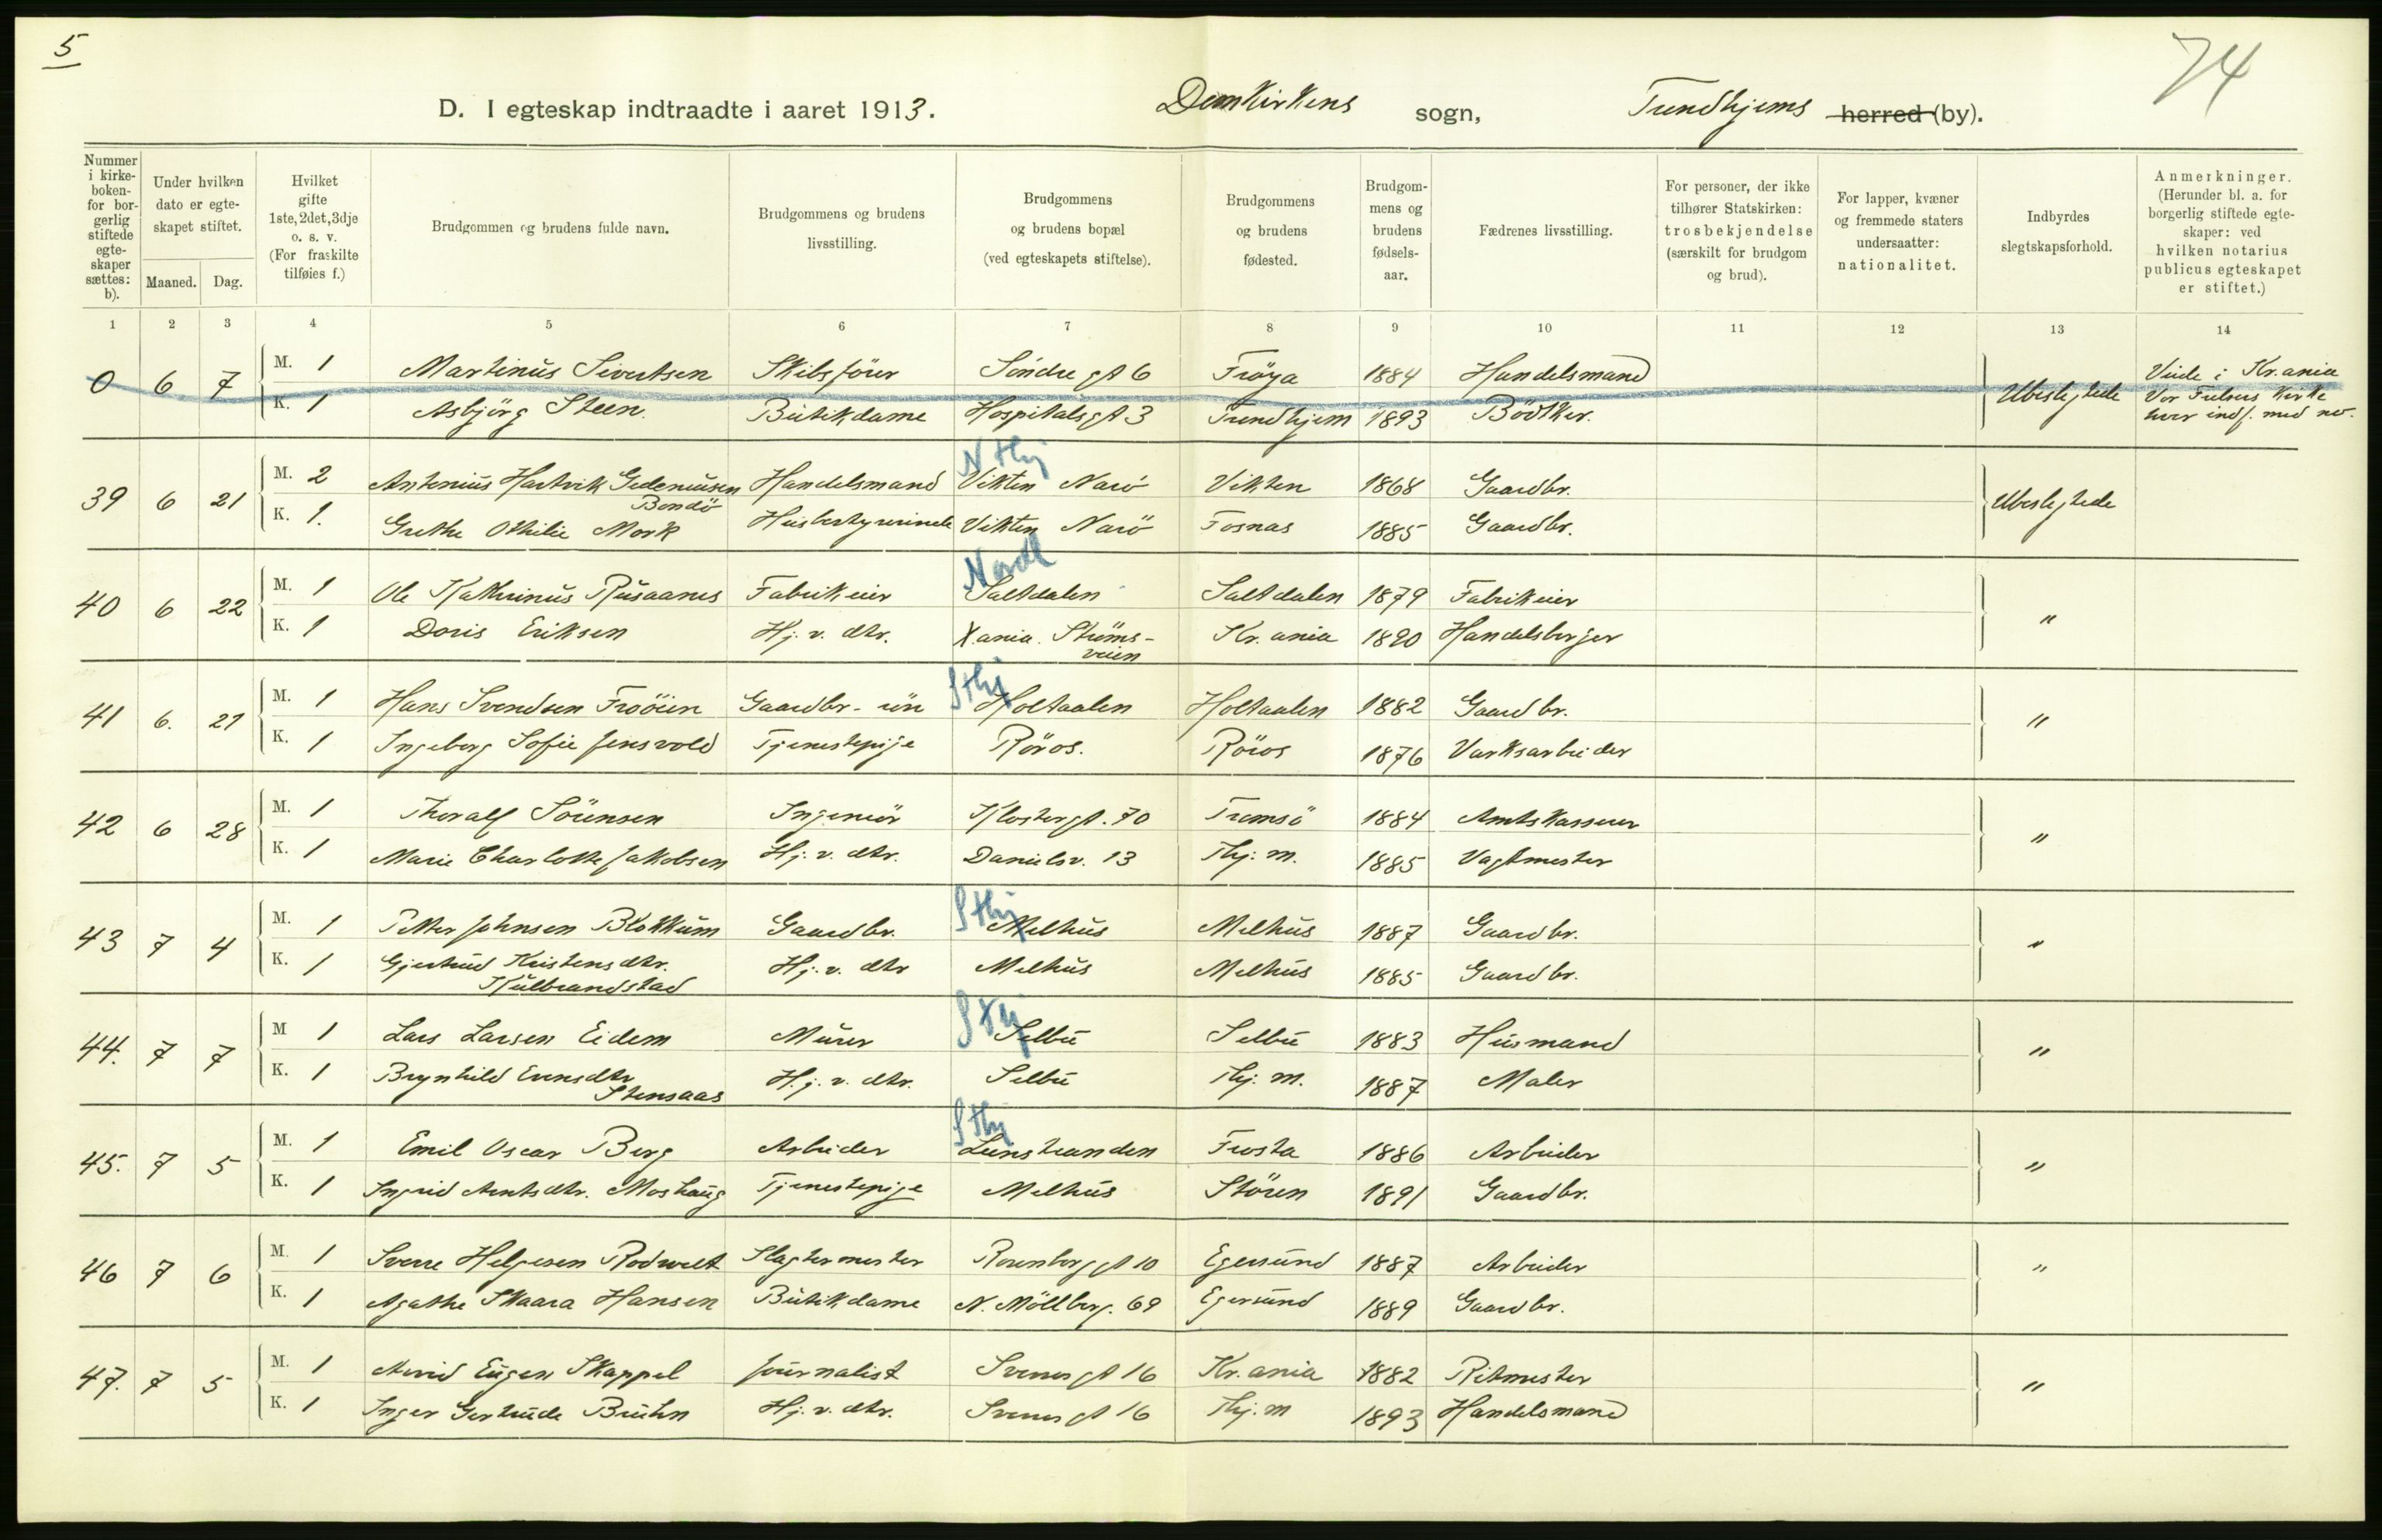 5
74
D. I egteskap indtraadte i aaret 1913. Domkirkens sogn, Trondhjems herred (by).
Nummer i kirkeboken for borgerlig stiftede egteskaper sættes: b). Under hvilken dato er egteskapet stiftet. Maaned. Dag. Hvilket gifte 1ste, 2det, 3dje o. s. v. (For fraskilte tilføies f.) Brudgommen og brudens fulde navn. Brudgommens og brudens livsstilling. Brudgommens og brudens bopæl (ved egteskapets stiftelse). Brudgommens og brudens fødested. Brudgommens og brudens fødselsaar. Fædrenes livsstilling. For personer, der ikke tilhører Statskirken: trosbekjendelse (særskilt for brudgom og brud). For lapper, kvæner og fremmede staters undersaatter: nationalitet. Indbyrdes slegtskapsforhold. Anmerkninger. (Herunder bl. a. for borgerlig stiftede egteskaper: ved hvilken notarius publicus egteskapet er stiftet.)
1 2 3 4 5 6 7 8 9 10 11 12 13 14
0 6 7 M. 1 Martinus Sivertsen Skibsfører Søndre gt 6 Frøya 1884 Handelsmand Ubeslegtede Viede i Kr.ania
K. 1 Asbjørg Steen. Butikdame Hospitalsgt 3 Trondhjem 1893 Bødker. Vor Frelsers Kirke
her indf. med no.
N thj
39 6 21 M. 2 Antonius Hartvik Gedeniusen Handelsmand Vikten Narö Vikten 1868 Gaardbr. Ubeslegtede
Bondö
K. 1. Grethe Othilie Mork Husbestyrerinde Vikten Narö Fosnas 1885 Gaardbr.
Nordl
40 6 22 M. 1 Ole Kathrinus Rusaanes Fabrikeier Saltdalen Saltdalen 1879 Fabrikeier "
K. 1 Doris Eriksen Hj. v. dtr. X.ania. Strøms- Kr.ania 1890 Handelsborger
veien
S thj
41 6. 21 M. 1 Hans Svendsen Frööien Gaardbr.- sön Holtaalen Holtaalen 1882 Gaardbr. "
K. 1 Ingeborg Sofie Jensvold Tjenestepige Röros. Röros 1876 Varksarbeider
42 6 28 M. 1 Thoralf Sörensen Ingeniör Klostergt. 70 Tromsö 1884 Amtskasserer "
K. 1 Marie Charlotte Jakobsen Hj. v. dtr. Danielsv. 13 Thj.m. 1885 Vagtmester
S thj
43 7 4 M. 1 Petter Johnsen Blokkum Gaardbr. Melhus Melhus 1887 Gaardbr. "
K. 1 Gjertrud Kristensdtr. Hj. v. dtr Melhus Melhus 1885 Gaardbr.
Kulbrandstad
S thj
44. 7 7 M 1 Lars Larsen Eidem Murer Selbu Selbu 1883 Husmand "
K. 1 Brynhild Evensdtr Hj. v. dtr. Selbu Thj.m. 1887 Maler
Stensaas
S thj
45. 7 5 M. 1 Emil Oscar Berg Arbeider Leinstranden Frosta 1886 Arbeider "
K. 1 Ingrid Arntsdtr. Moshaug Tjenestepige Melhus Stören 1891 Gaardbr.
46 7 6 M. 1 Sverre Helgesen Rodvelt Slagtermester Rosenborggt 10 Egersund 1887 Arbeider "
K. 1 Agathe Skaara Hansen Butikdame N. Möllberg. 69 Egersund 1889 Gaardbr.
47. 7 5 M. 1 Arvid Eugen Skappel Journalist Sverres gt 16 Kr.ania 1882 Ritmester "
K. 1 Inger Gertrude Bruhn Hj. v. dtr. Sverres gt 16 Thj.m 1893 Handelsmand